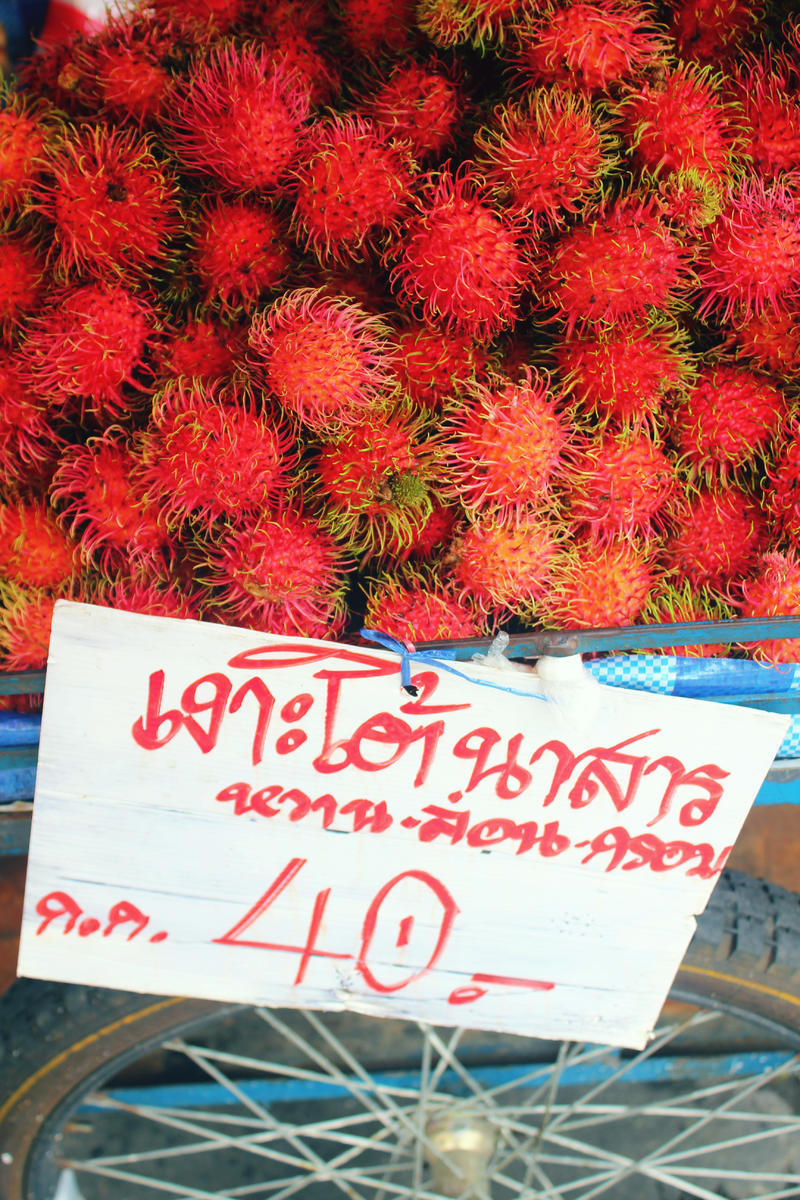 เงาะโต้นาสาร
หวาน-ล่อน-กรอบ
ก.ก. 40.-